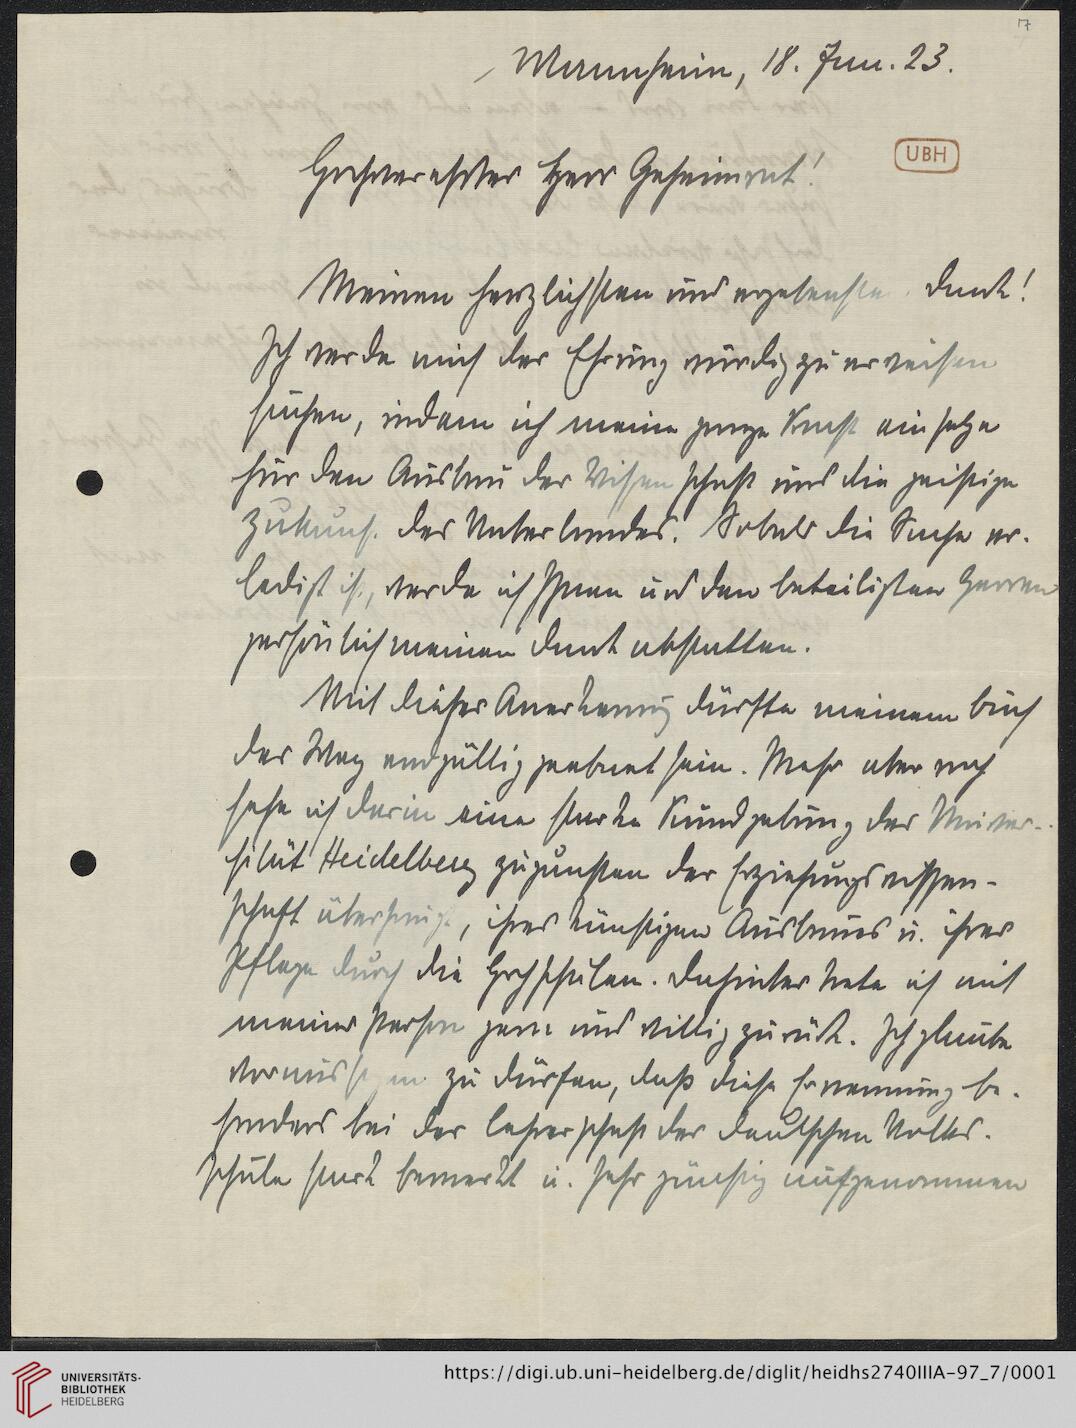 17
Mannheim, 18. Jan. 23.
UBH
Hochverehrter Herr Geheimrat!
Meinen herzlichsten und ergebensten Dank!
Ich werde mich der Ehrung würdig zu erweisen
suchen, indem ich meine ganze Kraft einsetze
für den Ausbau der Wissenschaft und die geistige
Zukunft des Vaterlandes. Sobald die Sache er-
ledigt ist, werde ich Ihnen und den beteiligten Herren
persönlich meinen Dank abstatten.
Mit dieser Anerkennung dürfte meinem Buch
der Weg endgültig geebnet sein. Mehr aber noch
sehe ich darin eine starke Kundgebung der Univer-
sität Heidelberg zugunsten der Erziehungswissen-
schaft überhaupt, ihres künftigen Ausbaues u. ihrer
Pflege durch die Hochschulen. Dahinter trete ich mit
meiner Person gern und willig zurück. Ich glaube
voraussagen zu dürfen, daß diese Ernennung be-
sonders bei der Lehrerschaft der deutschen Volks-
schule stark bemerkt u. sehr günstig aufgenommen
UNIVERSITÄTS-
BIBLIOTHEK
HEIDELBERG
https://digi.ub.uni-heidelberg.de/diglit/heidhs2740IIIA-97_7/0001